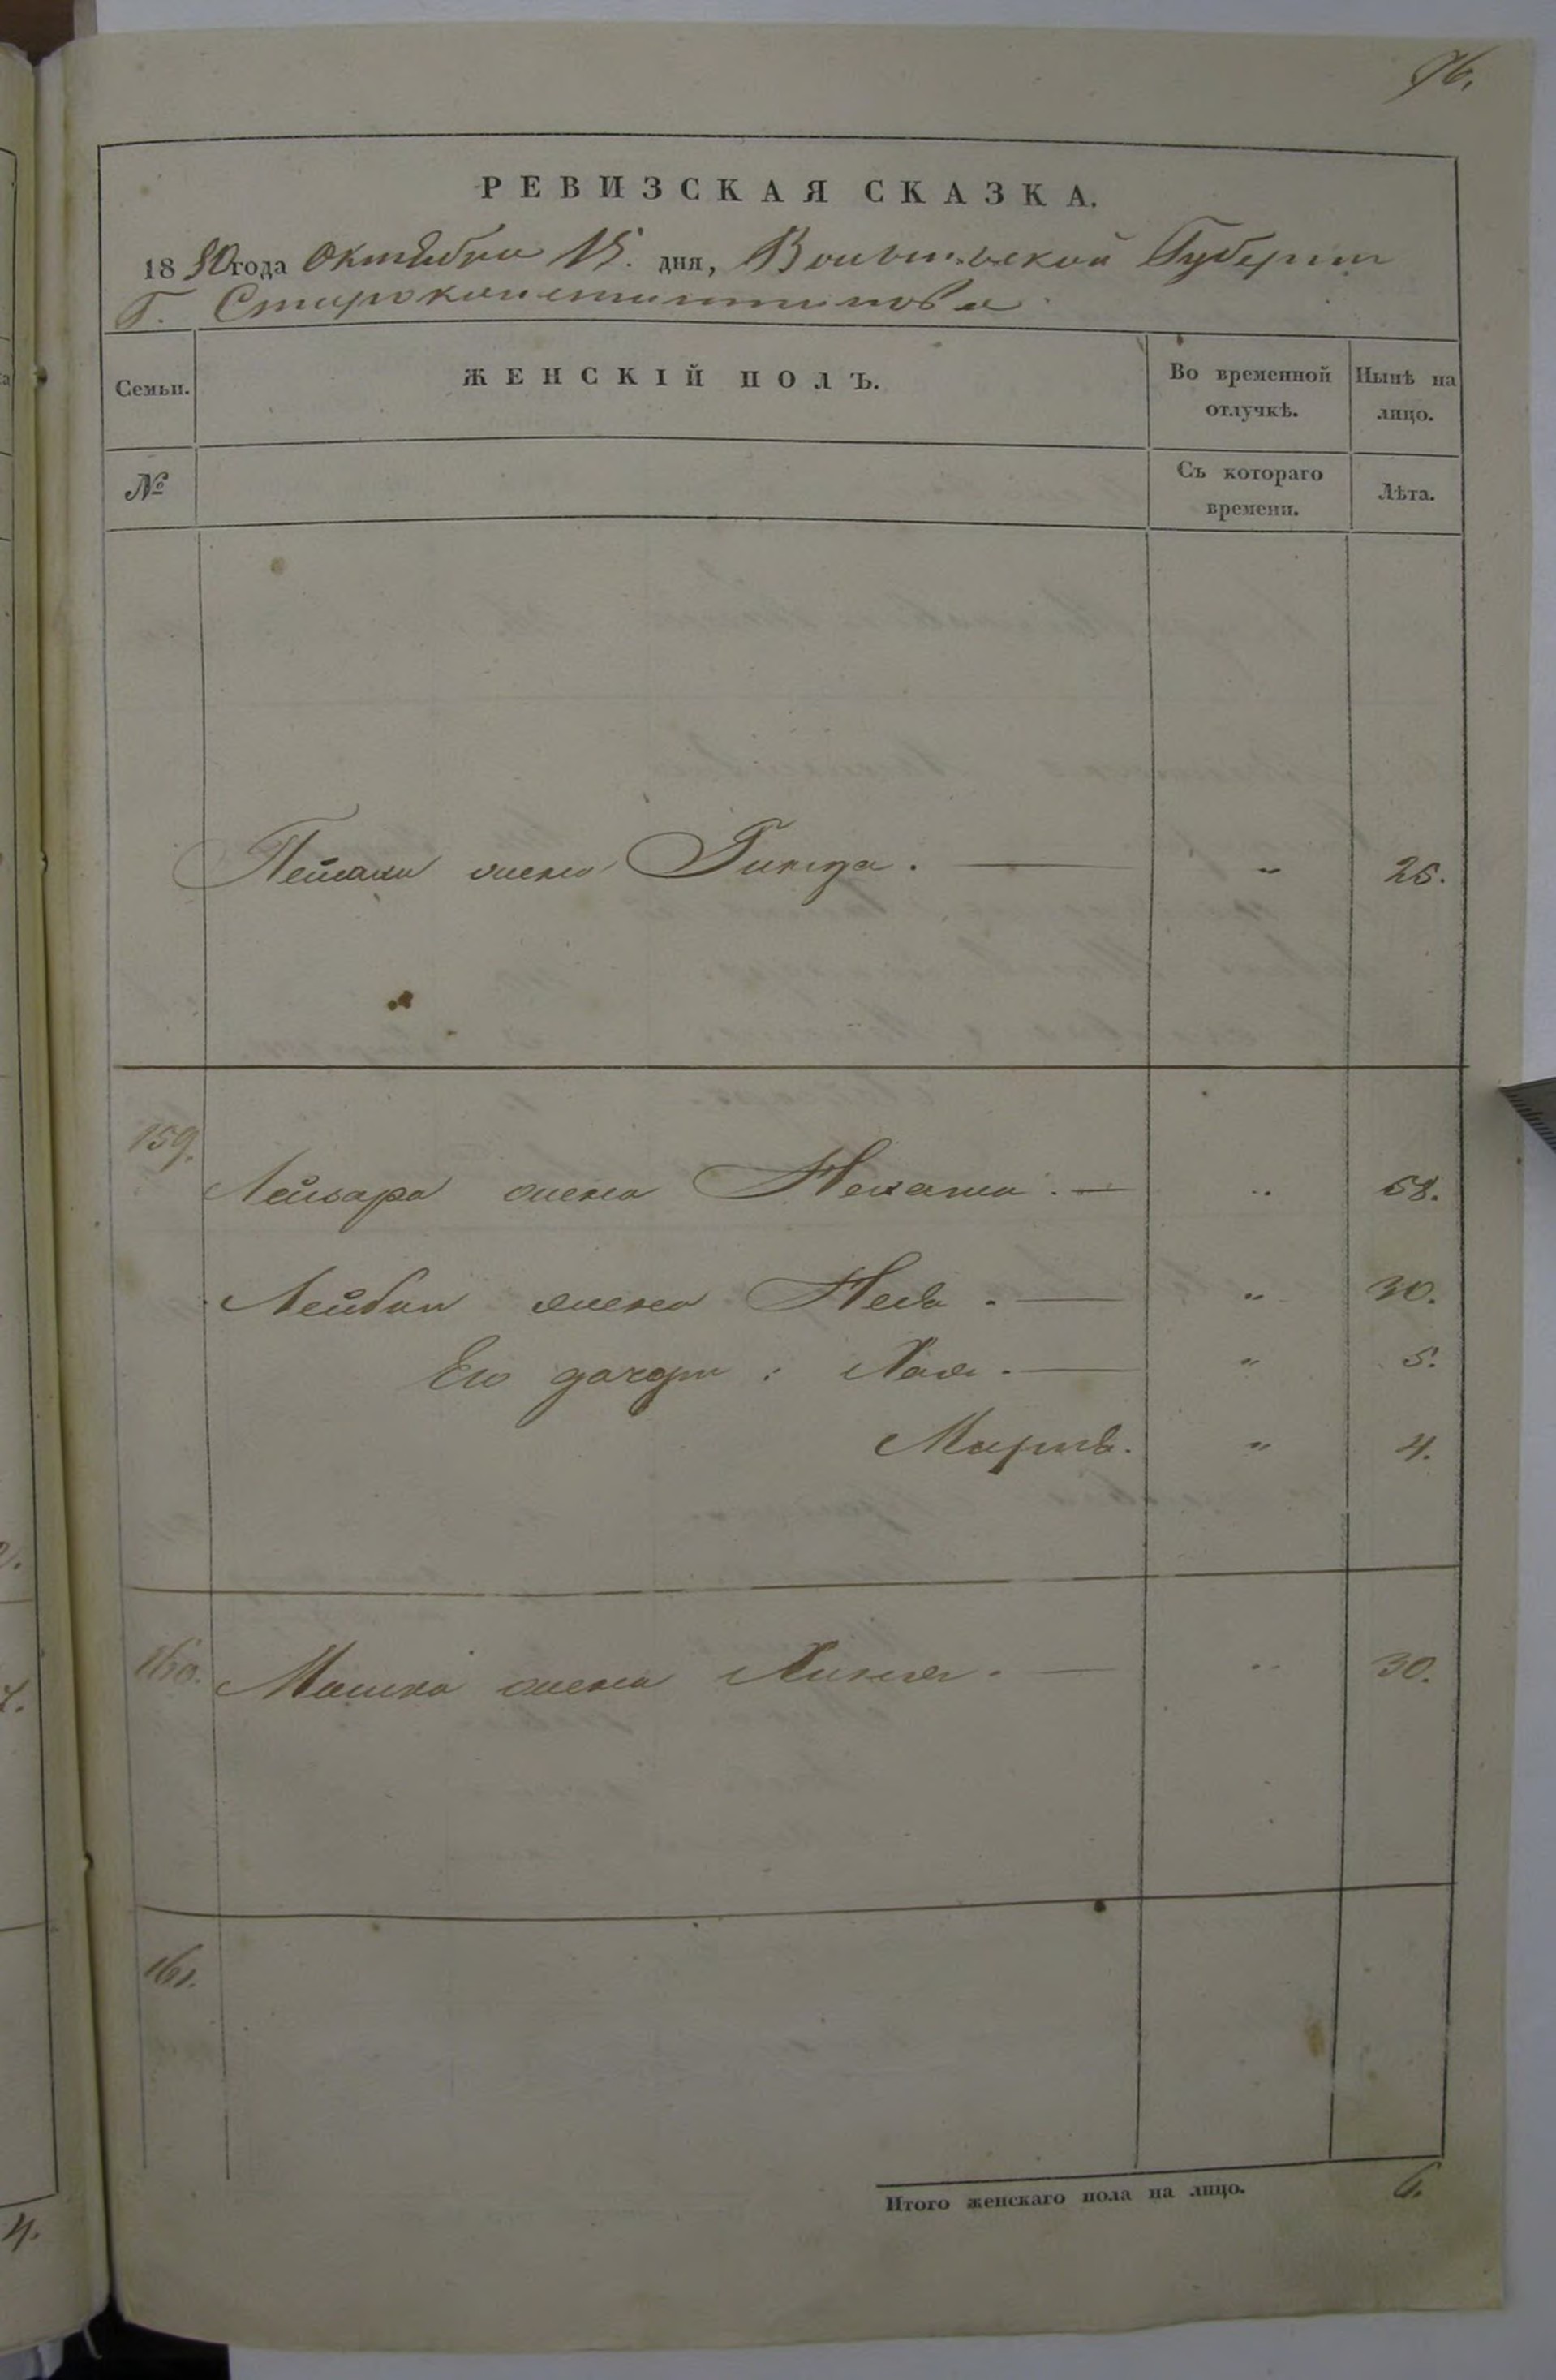 96.
РЕВИЗСКАЯ СКАЗКА.
1850 года Октября 15. дня, Волынской Губернии
Г. Староконстантинова
Семьи.
ЖЕНСКІЙ ПОЛЪ.
Во временной отлучкѣ.
Нынѣ на лицо.
№
Съ котораго времени.
Лѣта.
жена Гинда. — „ 25.
159.
Лейзара жена Нехама. — „ 58.
Лейбы жена Неся. — „ 30.
Его дочери: Хая. — „ 5.
Мирля. „ 4.
160. Мошка жена Хиня. — „ 30.
161.
Итого женскаго пола на лицо. 6.
4.